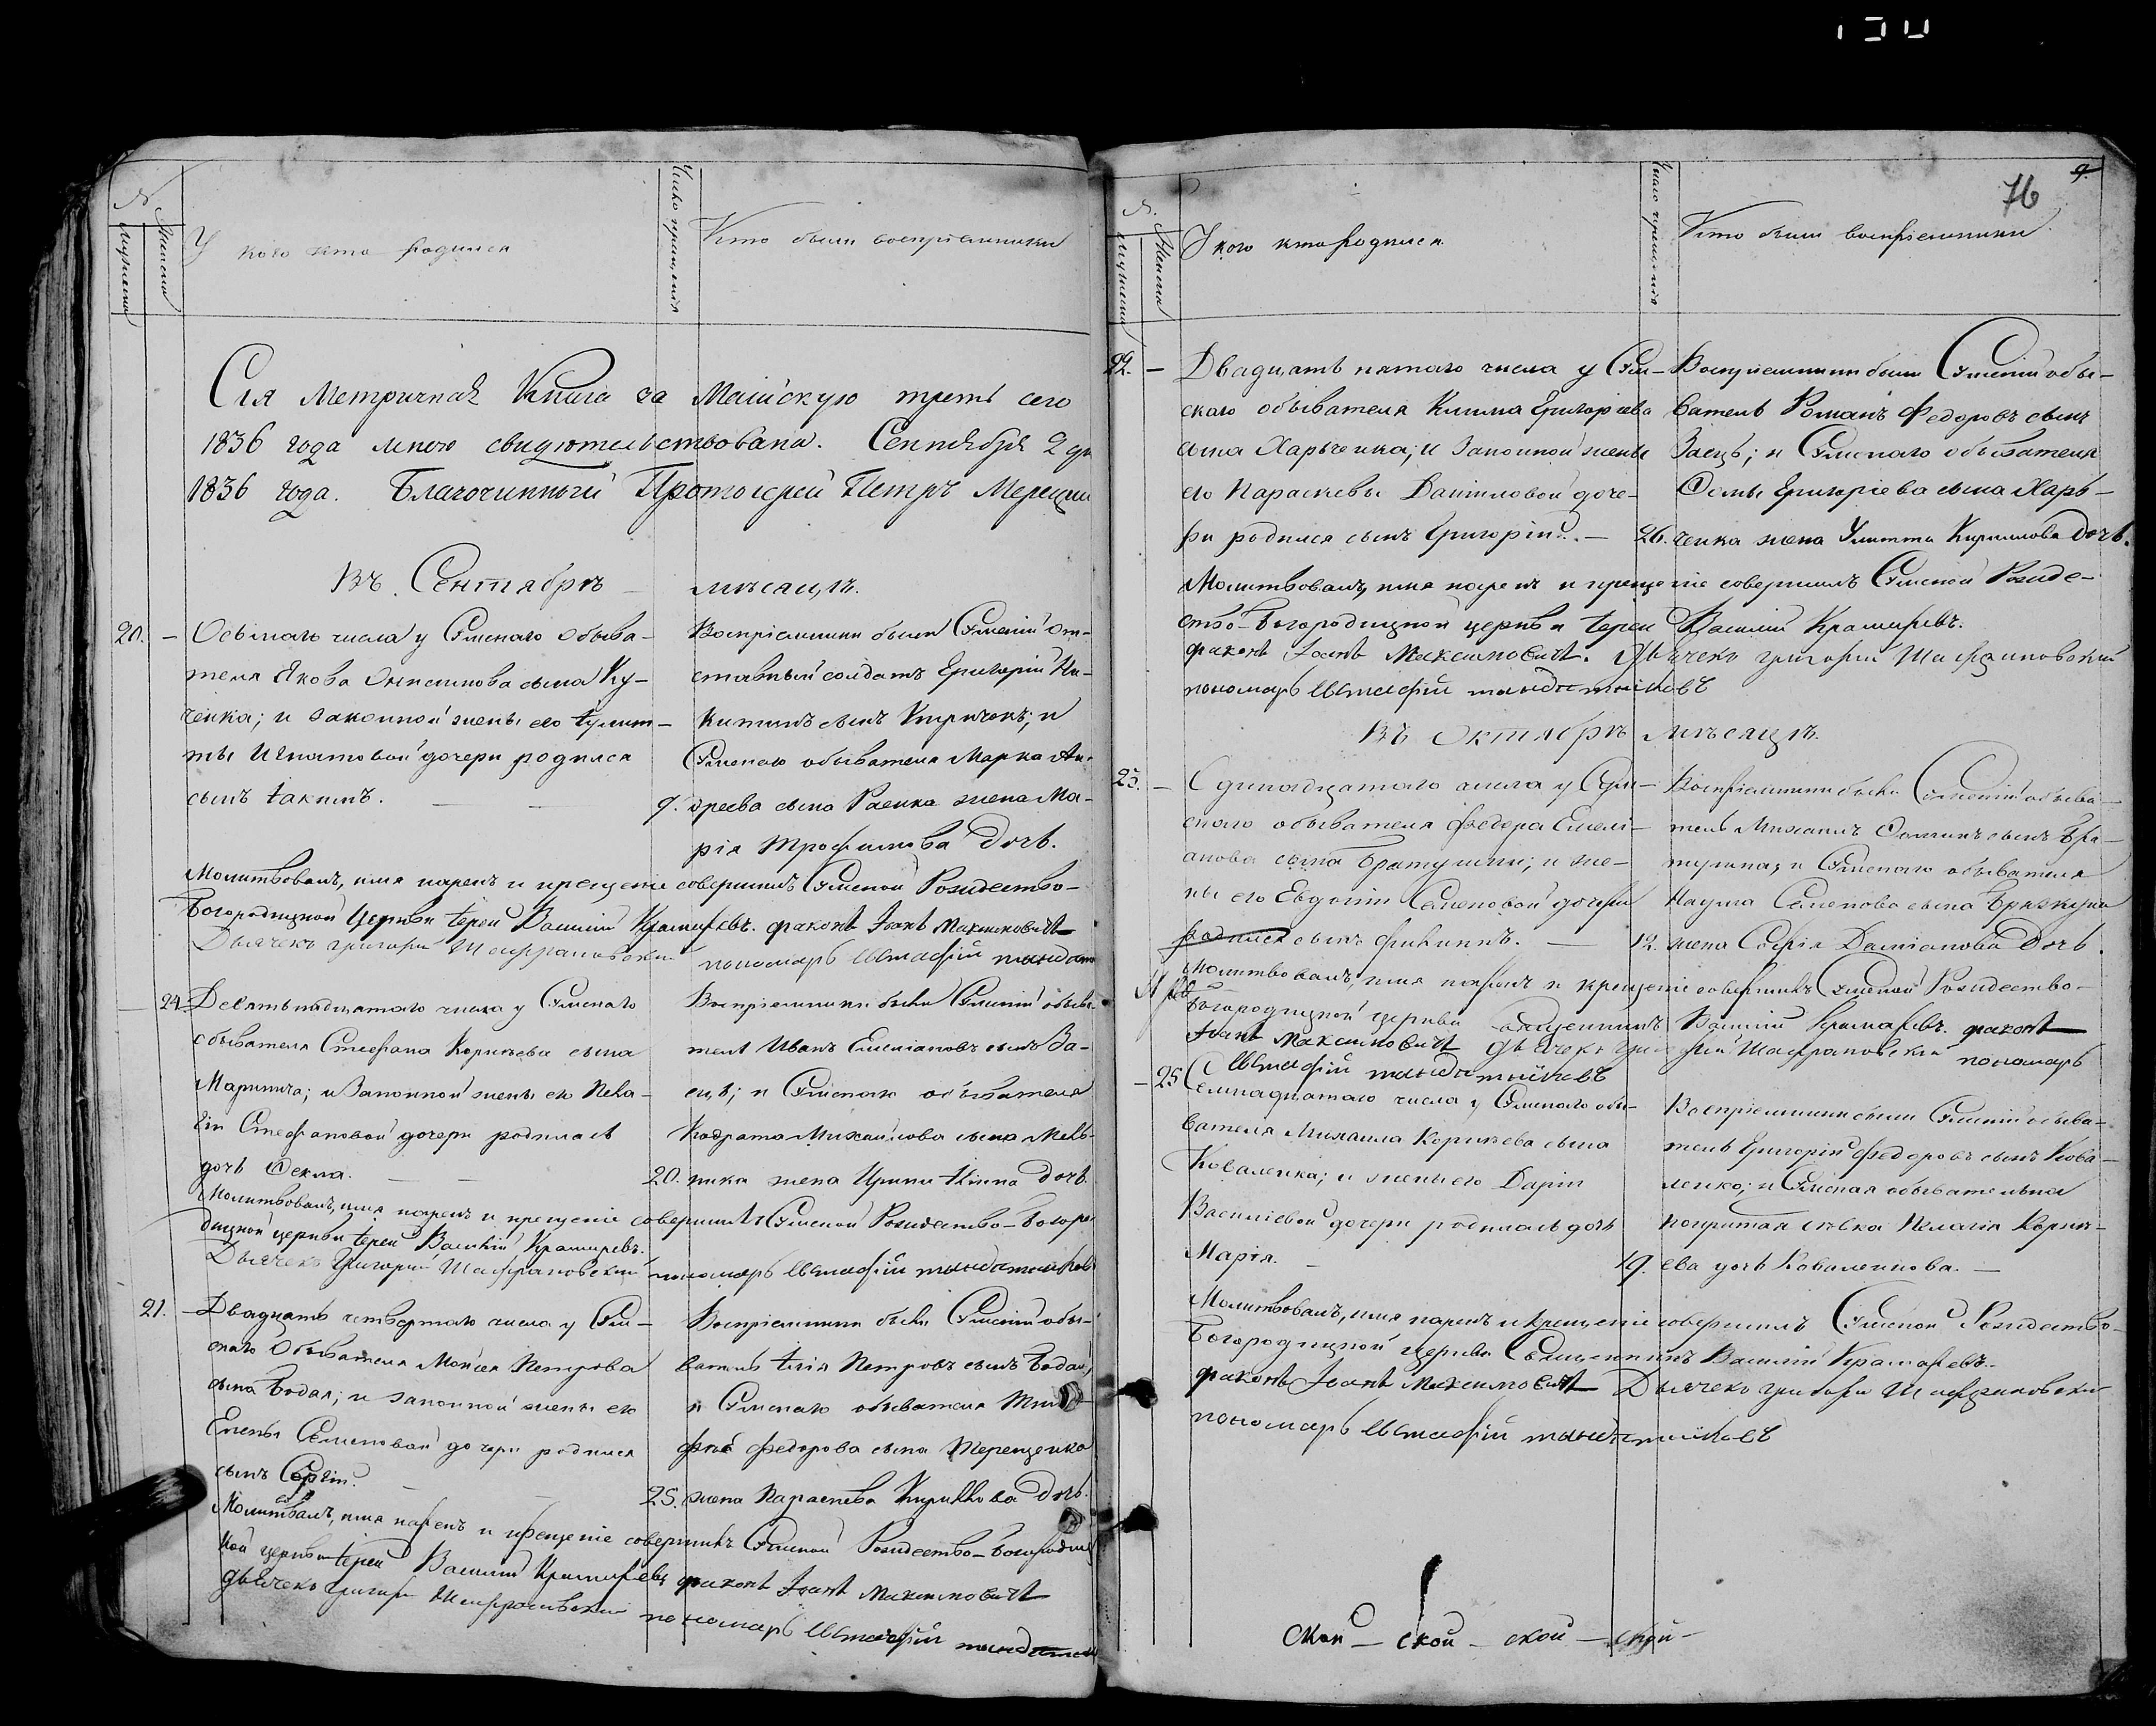 76
9.
№
Мужеска
Женска
У кого кто родился
Число крещенія
Кто были воспріемники
Сія Метричная Книга за Майскую треть сего
1836 года мною свидѣтельствована. Сентября 2 дн
1836 года. Благочинный Протоіерей Петръ
Въ Сентябрѣ мѣсяцѣ.
20. — Осьмаго числа у обыва-
теля Якова сына Ку-
ченка; и законной жены его Іулит-
ты Игнатовой дочери родился
сынъ Іакимъ. — —
9.
Воспріемники были от-
ставный солдатъ Григорій Ни-
китинъ сынъ и
обывателя Марка Ан-
дреева сына Раенка жена Ма-
рія Трофимова дочь.
Молитвовалъ, имя нарекъ и крещеніе совершилъ Рождество-
Богородицкой Церкви Іерей Василій Крамаревъ. діаконъ Іоанъ Максимовичъ
Дьячекъ Григорій Шафрановскій пономарь
— 24. Девятьнадцатаго числа у
обывателя Стефана Корнѣева сына
Маринича; и Законной жены его Пела-
гіи Стефановой дочери родилась
дочь Ѳекла. — —
20.
Воспріемники были обыва-
тель Иванъ Емеліановъ сынъ За-
ецъ; и обывателя
Кодрата Михайлова сына Мель-
ника жена Ирина дочь.
Молитвовалъ, имя нарекъ и крещеніе совершилъ Рождество-Богоро-
дицкой церкви Іерей Василій Крамаревъ.
Дьячекъ Григорій Шафрановскій пономарь
21. — Двадцать четвертаго числа у
скаго Обывателя Моисея Петрова
сына Бодая; и законной жены его
Елены Семеновой дочери родился
сынъ Сергій. — —
25.
Воспріемники были обы-
ватель Илія Петровъ сынъ Бодай,
и обывателя
Федорова сына Терещенка
жена Параскева Кирилова дочь.
Молитвовалъ, имя нарекъ и крещеніе совершилъ Рождество-Богородиц
кой церкви Іерей Василій Крамаревъ діаконъ Іоанъ Максимовичъ
дьячекъ Григорій Шафрановскій пономарь
№
Мужеска
Женска
У кого кто родился
Число крещенія
Кто были воспріемники
22. — Двадцать пятаго числа у
скаго обывателя Клима Григоріева
сына Харьченка; и Законной жены
его Параскевы Даниловой доче-
ри родился сынъ Григорій. —
26.
Воспріемники были обы-
ватель Романъ Федоровъ сынъ
Заецъ; и обывателя
Ѳомы Григоріева сына Харь-
ченка жена Улитта Кирилова дочь.
Молитвовалъ, имя нарекъ и крещеніе совершилъ Рожде-
ство-Богородицкой церкви Іерей Василій Крамаревъ.
діаконъ Іоанъ Максимовичъ. Дьячекъ Григорій Шафрановскій
пономарь
Въ Октябрѣ мѣсяцѣ.
23. — Єдинадцатаго числа у
скаго обывателя Федора Емелі-
анова сына Братушки; и же-
ны его Евдокіи Семеновой дочери
родился сынъ Филиппъ. —
12.
Воспріемники были обыва-
тель Михаилъ Ѳоминъ сынъ Бра-
тушка; и обывателя
Наума Семенова сына
жена Софія Даміанова дочь.
Молитвовалъ, имя нарекъ и крещеніе совершилъ Рождество-
Богородицкой церкви Священникъ Василій Крамаревъ. діаконъ
Іоанъ Максимовичъ дьячекъ Григорій Шафрановскій пономарь
— 25 Семнадцатаго числа у обы-
вателя Михаила Корнѣева сына
Коваленка; и жены его Даріи
Василіевой дочери родилась дочь
Марія. —
19.
Воспріемники были обыва-
тель Григорій Федоровъ сынъ Кова-
ленко; и обывателька
Пелагія Корнѣ-
ева дочь Коваленкова. —
Молитвовалъ, имя нарекъ и крещеніе совершилъ Рождество-
Богородицкой церкви Священникъ Василій Крамаревъ.
діаконъ Іоанъ Максимовичъ Дьячекъ Григорій Шафрановскій
пономарь
ской — ской — ской — ской —